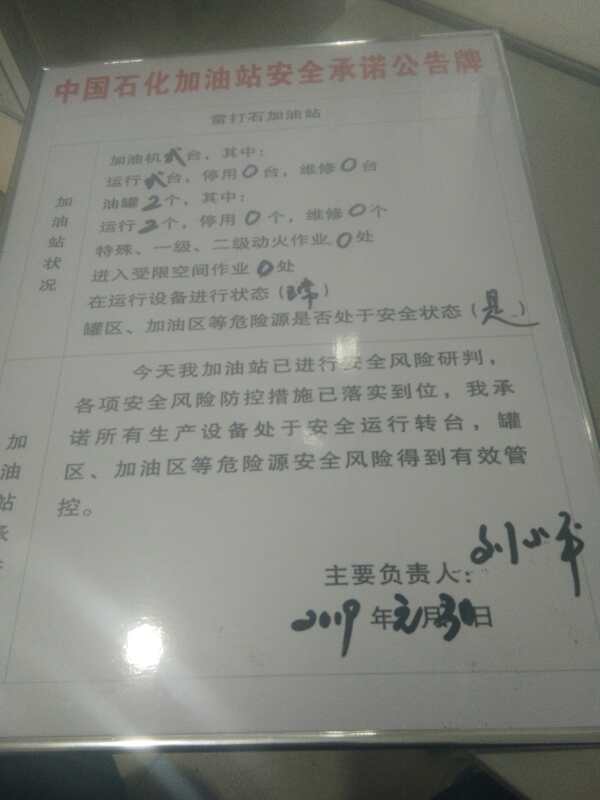 中国石化加油站安全承诺公告牌
雷打石加油站
加油站状况
加油机 台，其中：
运行 台，停用0台，维修0台
油罐2个，其中：
运行2个，停用0个，维修0个
特殊、一级、二级动火作业0处
进入受限空间作业0处
在运行设备进行状态（正常）
罐区、加油区等危险源是否处于安全状态（是）
加油站承
今天我加油站已进行安全风险研判，
各项安全风险防控措施已落实到位，我承
诺所有生产设备处于安全运行转台，罐
区、加油区等危险源安全风险得到有效管
控。
主要负责人：刘小平
2019年元月30日